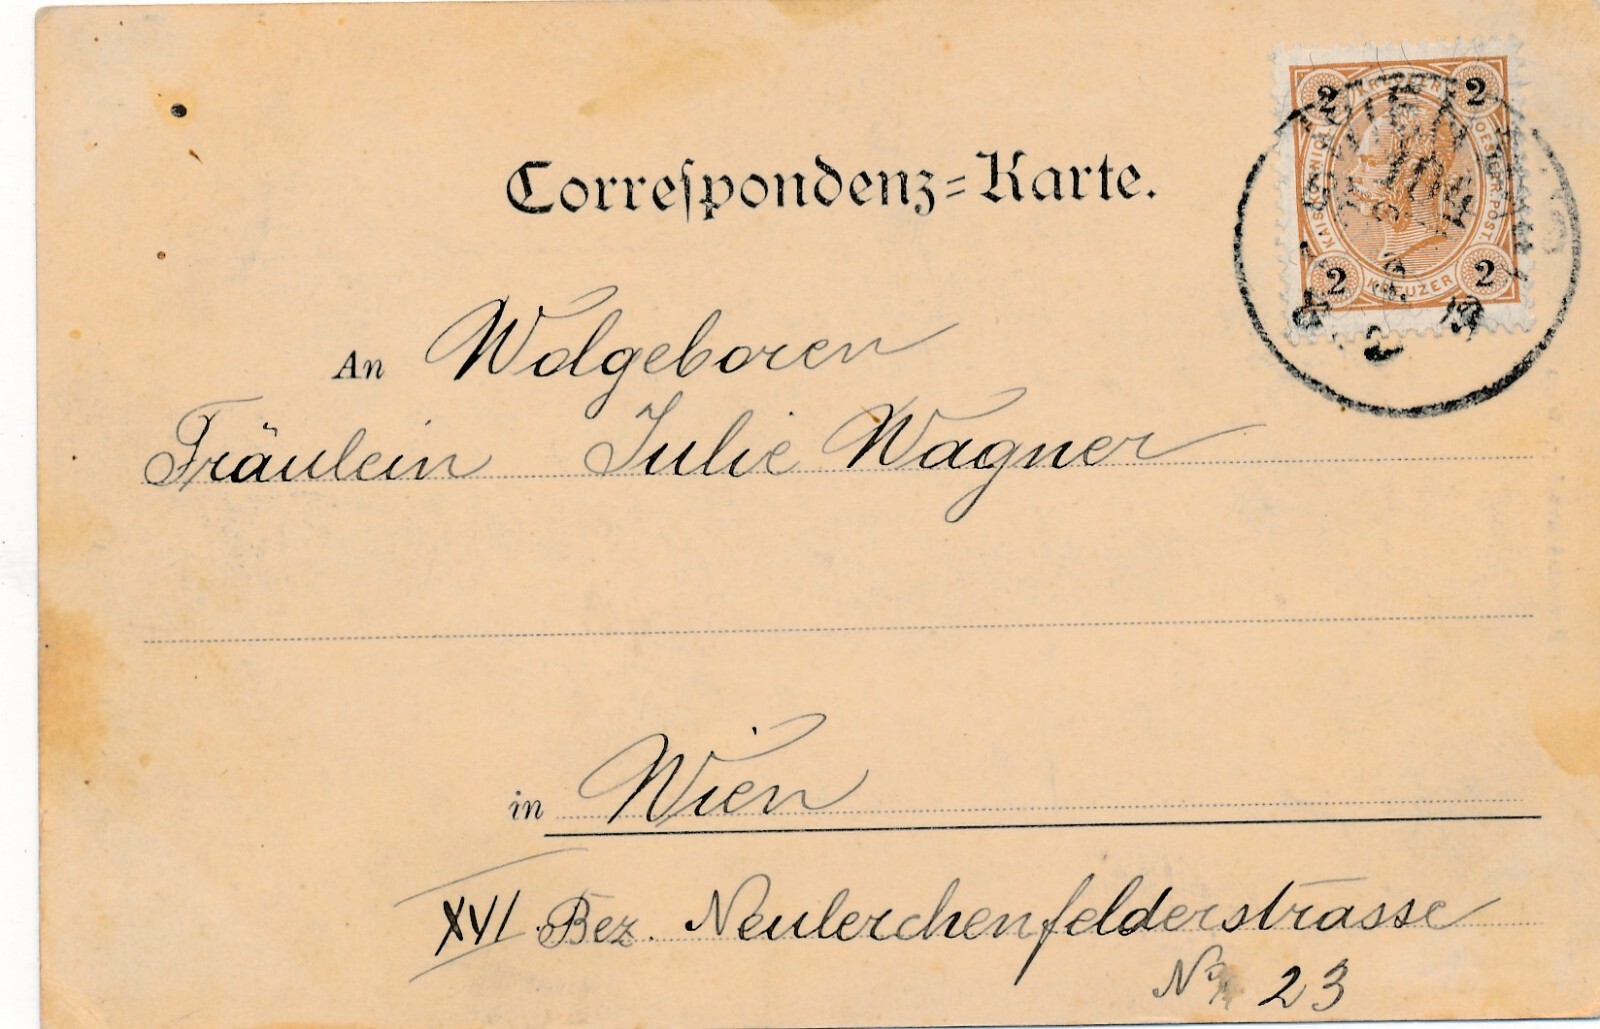 Correspondenz=Karte.
2 KREUZER 2
KAIS. KÖNIGL. OESTERR. POST.
2 KREUZER 2
An Wolgeboren
Fräulein Julie Wagner
in Wien
XVI. Bez. Neulerchenfelderstrasse
No 23